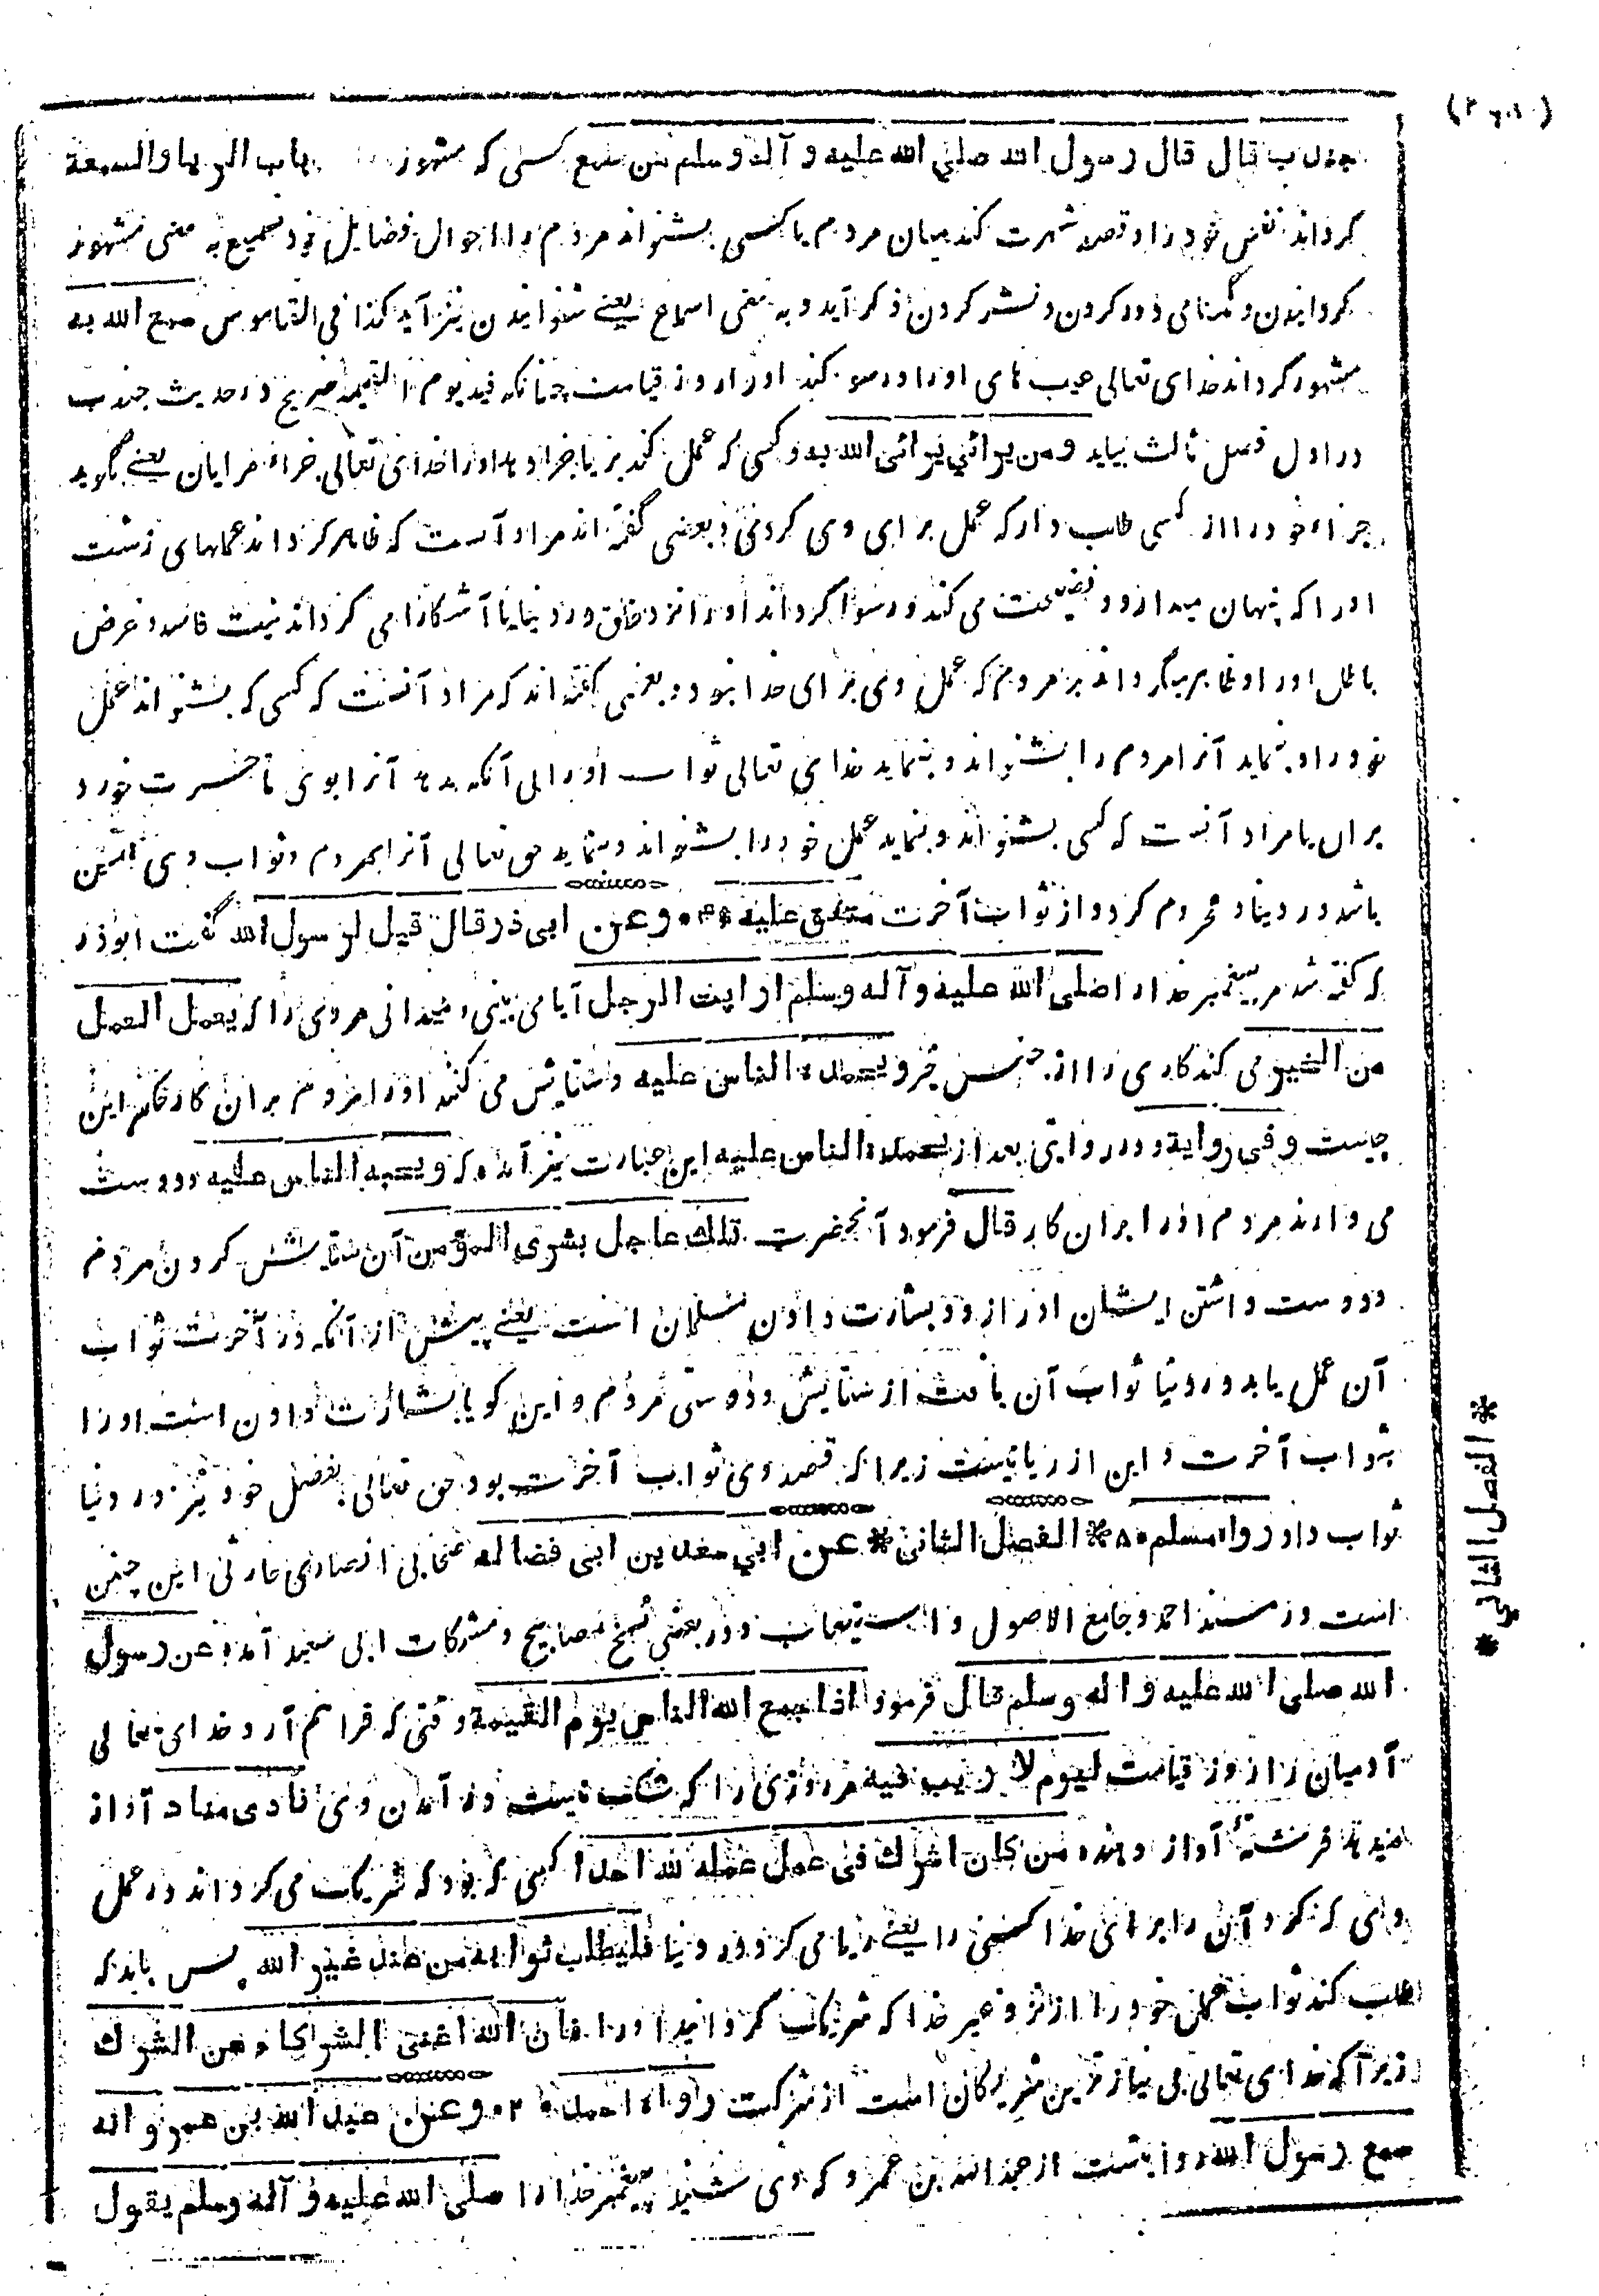 جندب قال قال رسول الله صلي الله عليه و آله وسلم من سمع کسی که مشهور باب الریا والسمعة
گرداند نفس خود را و قصد شهرت کند میان مردم یا کسی بشنواند مردم را احوال و فضایل خود تسمیع به معنی مشهور
گردانیدن و گمنامی دور کردن و نشر کردن ذکر آید و به معنی اسماع یعنے شنوانیدن نیز آید کذا فی القاموس سمع الله به
مشهور گرداند خدای تعالی عیب های او را و رسوا کند او را روز قیامت چنانکه قید یوم القیمة صریح در حدیث جندب
در اول فصل ثالث بیاید و من یرائي یرائي الله به و کسی که عمل کند بریا جزا دهد او را خدای تعالی جزاء مرایان یعنے بگوید
جزاء خود را از کسی طلب دار که عمل برای وی کردی و بعضی گفته اند مراد آنست که ظاهر گرداند عملهای زشت
او را که پنهان میدارد و فضیحت می کند و رسوا گرداند او را نزد خلق در دنیا یا آشکارا می گرداند نیت فاسد و غرض
باطل او را و ظاهر میگرداند بر مردم که عمل وی برای خدا نبود و بعضی گفته اند که مراد آنست که کسی که بشنواند عمل
خود را و بنماید آنرا مردم را بشنواند و بنماید خدای تعالی ثواب او را بی آنکه بدهد آنرا بوی تا حسرت خورد
بران یا مراد آنست که کسی بشنواند و بنماید عمل خود را بشنواند و بنماید حق تعالی آنرا بمردم و ثواب وی همین
باشد در دنیا و محروم گردد از ثواب آخرت متفق علیه ۴۰ وعن ابی ذر قال قیل لرسول الله گفت ابوذر
که گفته شد مر پیغمبر خدا را صلی الله علیه و آله وسلم ارایت الرجل آیا می بینی و میدانی مردی را که یعمل العمل
من الخیر می کند کاری را از جنس خیر و یحمده الناس علیه و ستایش می کنند او را مردم بران کار حکم این
چیست و في رواية و در روایتی بعد از یحمده الناس علیه این عبارت نیز آمده که و یحبه الناس علیه و دوست
می دارند مردم او را بران کار قال فرمود آنحضرت تلك عاجل بشری المؤمن آن ستایش کردن مردم
و دوست داشتن ایشان او را زود بشارت دادن مسلمان است یعنے پیش از آنکه در آخرت ثواب
آن عمل یابد در دنیا ثواب آن یافت از ستایش و دوستی مردم و این گویا بشارت دادن است او را
بثواب آخرت و این از ریا نیست زیرا که قصد وی ثواب آخرت بود حق تعالی بفضل خود نیز در دنیا
ثواب داد رواه مسلم ۵۰ * الفصل الثاني * عن ابي سعد بن ابی فضالة صحابی انصاری حارثی این چنین
است در مسند احمد و جامع الاصول و استیعاب و در بعضی نسخ مصابیح و مشکات ابی سعید آمده عن رسول
الله صلی الله علیه و اله وسلم قال فرمود اذا جمع الله الناس یوم القیمة وقتی که فراهم آرد خدای تعالی
آدمیان را روز قیامت لیوم لا ریب فیه مر روزی را که شک نیست در آمدن وی نادی مناد آواز
میدهد فرشته آواز دهنده من کان اشرك في عمل عمله لله احدا کسی که بود که شریک می گرداند در عمل
وی که کرد آن را برای خدا کسی را یعنے ریا می کرد در دنیا فلیطلب ثوابه من عند غیر الله پس باید که
طلب کند ثواب عمل خود را از نزد غیر خدا که شریک گردانید او را فان الله اغنی الشركاء عن الشرك
زیرا که خدای تعالی بی نیاز ترین شریکان است از شرکت رواه احمد ۲۰ وعن عبد الله بن عمرو انه
سمع رسول الله روایتست از عبد الله بن عمرو که وی شنید پیغمبر خدا را صلی الله علیه و آله وسلم یقول
* الفصل الثاني *